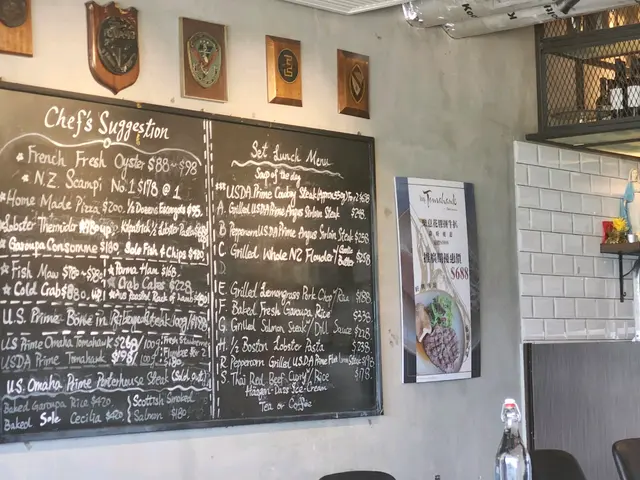 Chef's Suggestion
* French Fresh Oyster $88~$98
* N.Z. Scampi No.1 $178 @ 1
* Home Made Pizza $200. ½ Dozen Escargots $95.
Lobster Thermidor
* Garoupa Consomme $180 Sole Fish & Chips $180
* Fish Maw $78~$88 * Parma Ham $168.
* Cold Crab $880. up! * Crab Cakes $228
Roast Rack of Lamb
U.S. Prime Bone in Ribeye Steak
U.S Prime Omaha Tomahawk $268/100g
USDA Prime Tomahawk $198/100g
U.S. Omaha Prime Porterhouse Steak (Sold out)
Baked Garoupa Rice $420 Scottish Smoked
Baked Sole Cecilia $420 Salmon $180
Set Lunch Menu
Soup of the day
*** USDA Prime Cowboy Steak
A. Grilled USDA Prime Angus Sirloin Steak $248
B. Peppercorn USDA Prime Angus Sirloin Steak $258
C. Grilled Whole NZ Flounder / Garlic Butter $258
D
E. Grilled Lemongrass Pork Chop / Rice $188
F. Baked Fresh Garoupa Rice $338
G. Grilled Salmon Steak / Dill Sauce $218
H. ½ Boston Lobster Pasta $238
R. Peppercorn Grilled USDA Prime
S. Thai Red Beef Curry / Rice $178
Häagen-Dazs Ice-Cream
Tea or Coffee
$688